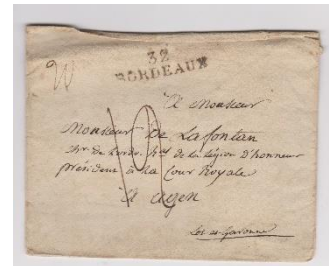 32
BORDEAUX
A Monsieur
Monsieur De Lafontan
de la légion D'honneur
président à la Cour Royale
A agen
Lot et Garonne